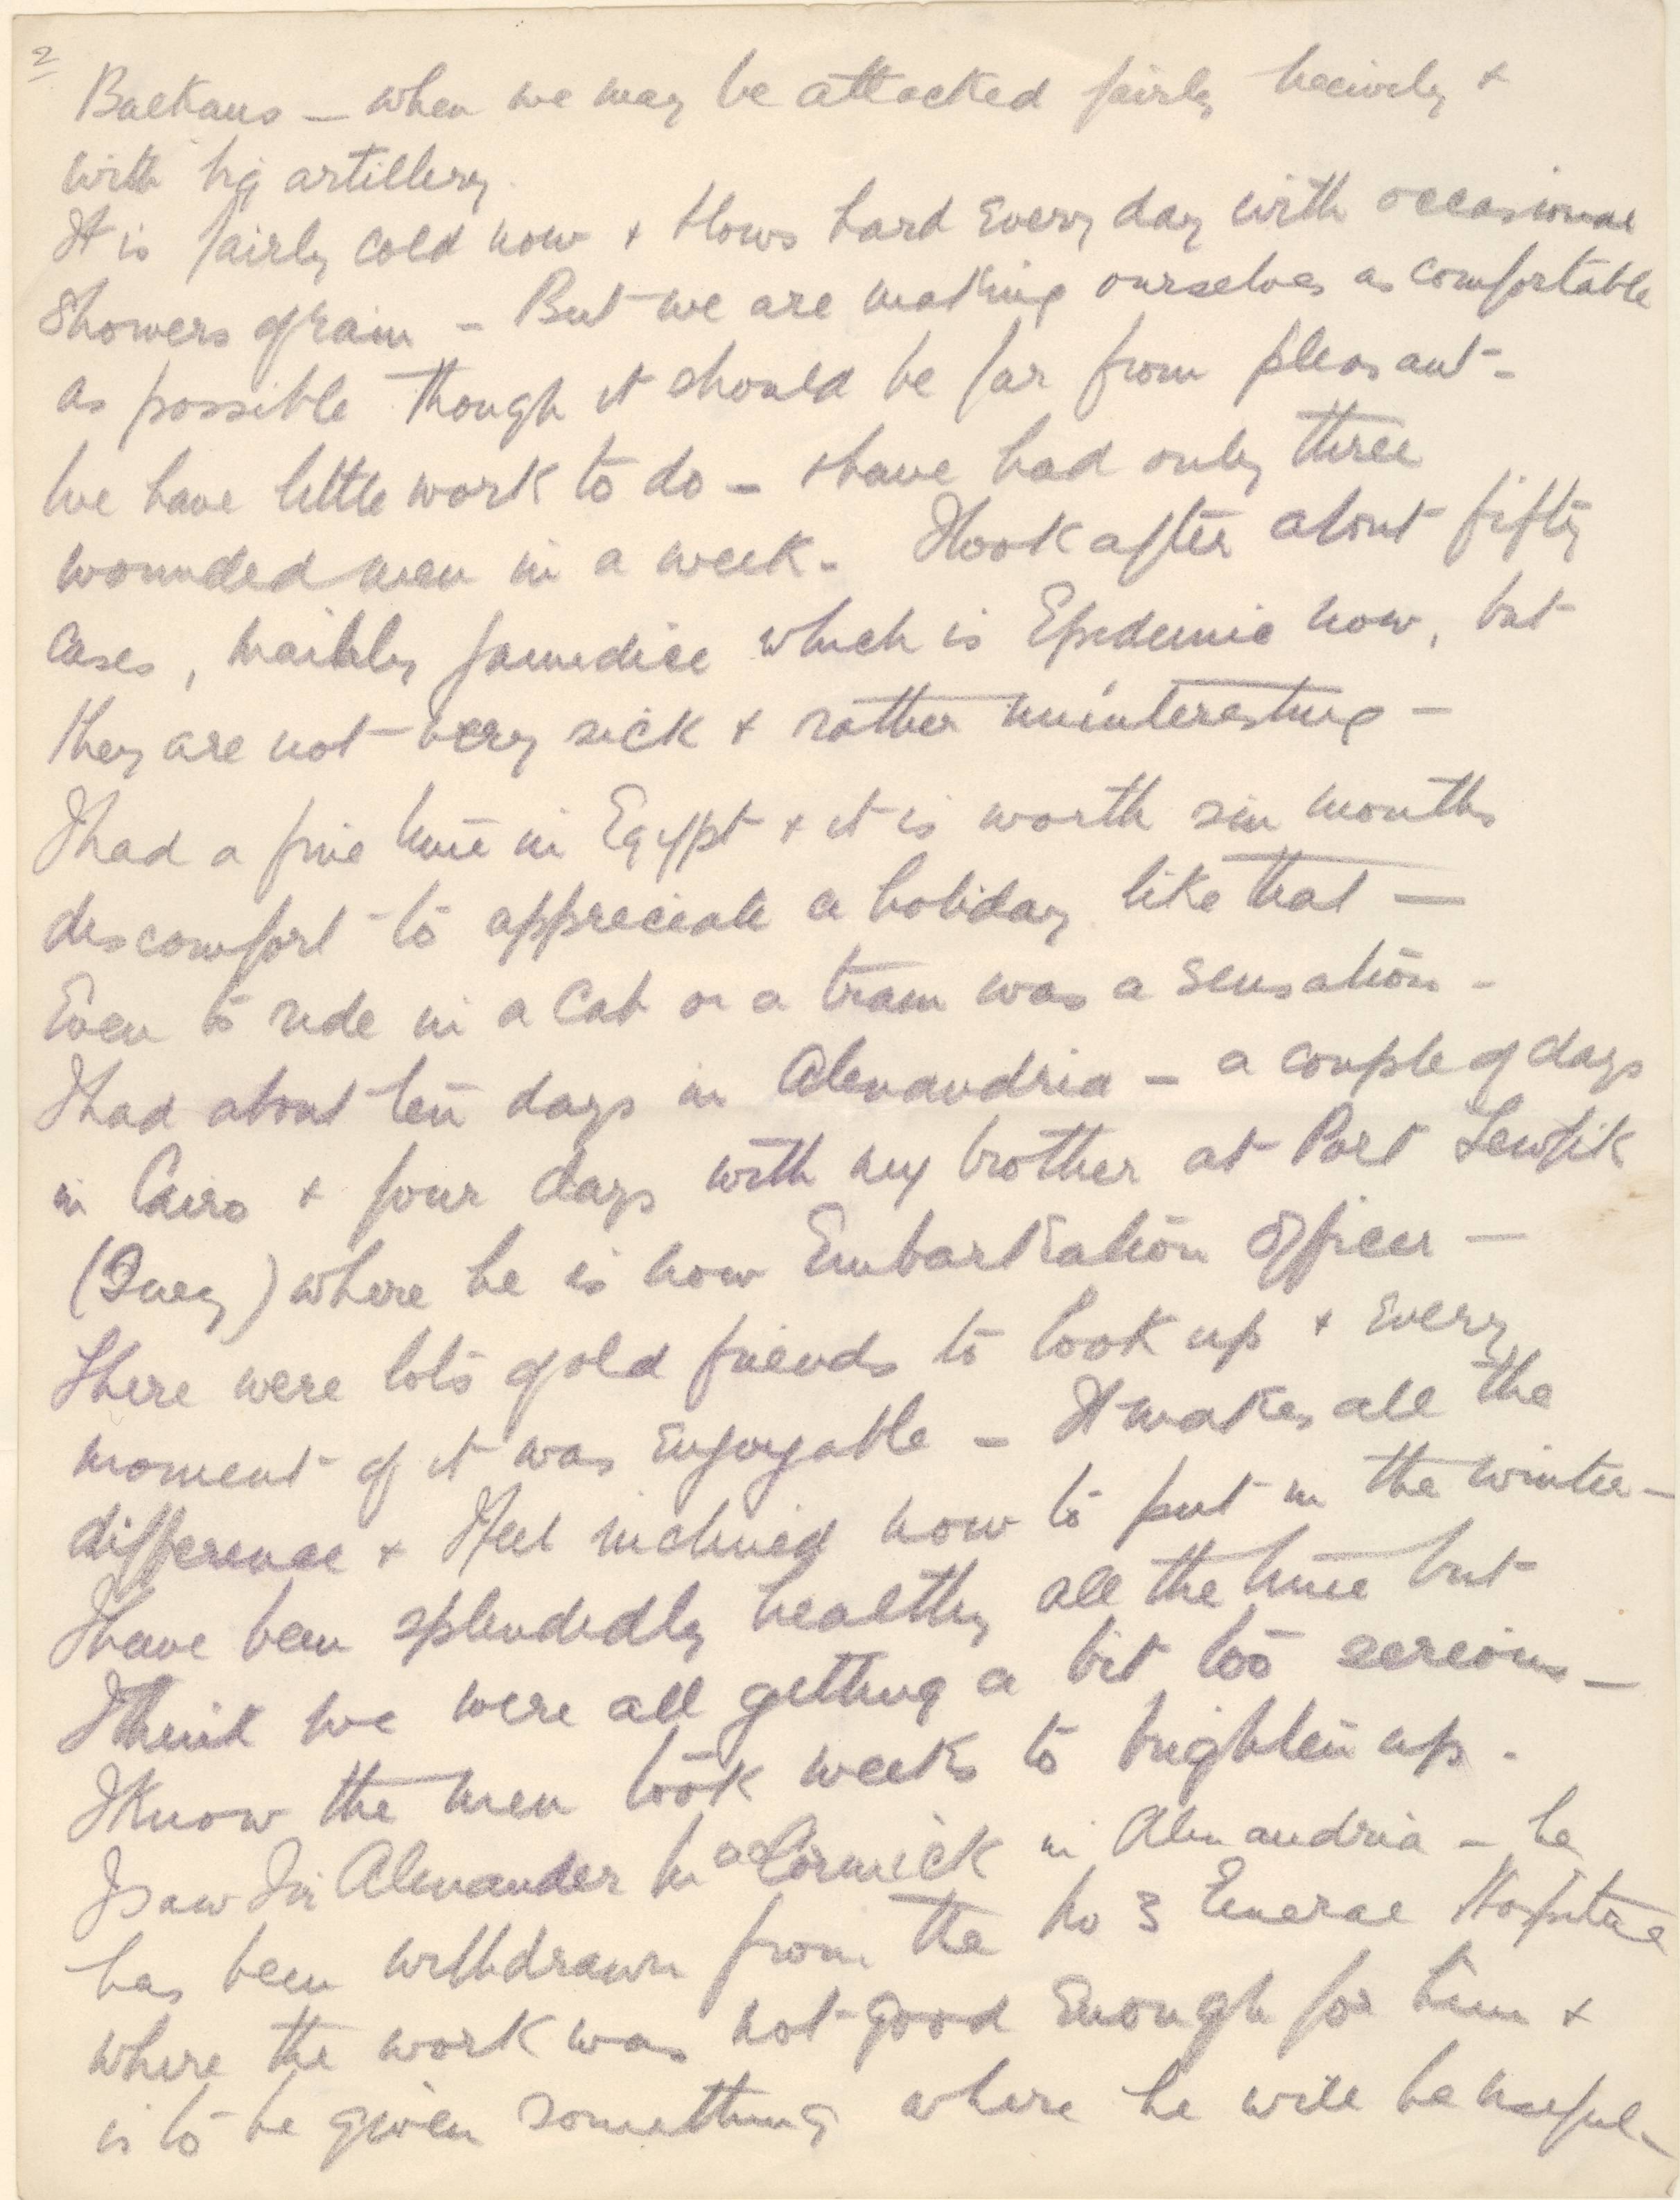 2
Balkans – when we may be attacked fairly heavily &
with big artillery.
It is fairly cold now & blows hard every day with occasional
showers of rain – But we are making ourselves as comfortable
as possible though it should be far from pleasant –
We have little work to do – & have had only three
wounded men in a week. I look after about fifty
cases, mainly jaundice which is Epidemic now, but
they are not very sick & rather uninteresting –
I had a fine time in Egypt & it is worth six months
discomfort to appreciate a holiday like that —
Even to ride in a cab or a tram was a sensation –
I had about ten days in Alexandria – a couple of days
in Cairo & four days with my brother at Port Tewfik
(Suez) where he is now Embarkation Officer —
There were lots of old friends to look up & every
moment of it was enjoyable – It makes all the
difference & I feel inclined now to put in the winter –
I have been splendidly healthy all the time but
I think we were all getting a bit too serious –
I know the men took weeks to brighten up.
I saw Sir Alexander MacCormick in Alexandria – he
has been withdrawn from the No 3 General Hospital
where the work was not good enough for him &
is to be given something where he will be useful –